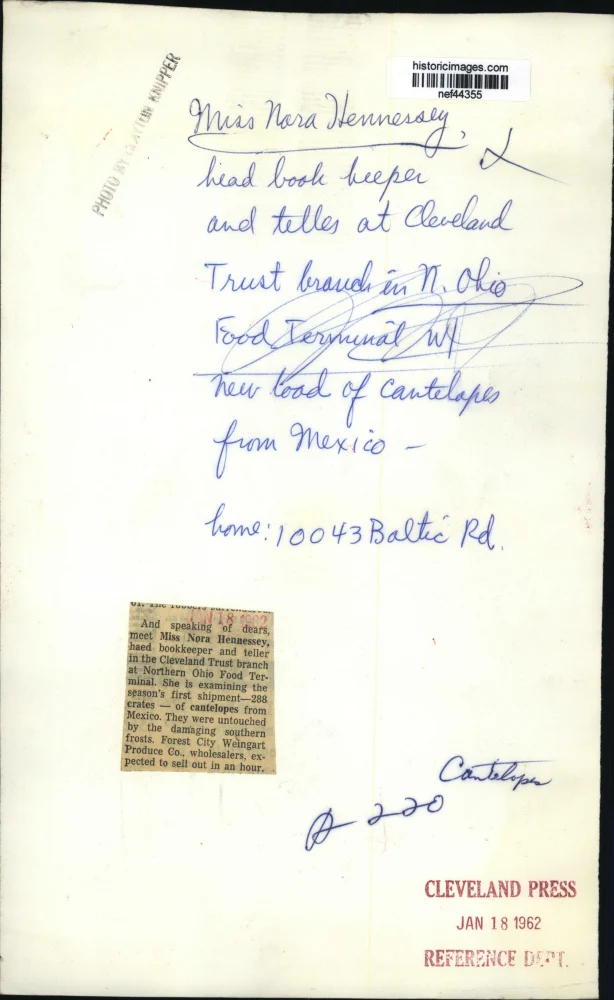 historicimages.com
nef44355
PHOTO BY CLAYTON KNIPPER
Miss Nora Hennessey,
head book keeper
and teller at Cleveland
Trust branch in N. Ohio
Food Terminal w/
new load of cantelopes
from Mexico —
home: 10043 Baltic Rd.
JAN 18 1962
And speaking of dears,
meet Miss Nora Hennessey,
haed bookkeeper and teller
in the Cleveland Trust branch
at Northern Ohio Food Ter-
minal. She is examining the
season's first shipment—288
crates — of cantelopes from
Mexico. They were untouched
by the damaging southern
frosts. Forest City Weingart
Produce Co., wholesalers, ex-
pected to sell out in an hour.
Cantelopes
220
CLEVELAND PRESS
JAN 18 1962
REFERENCE DEPT.